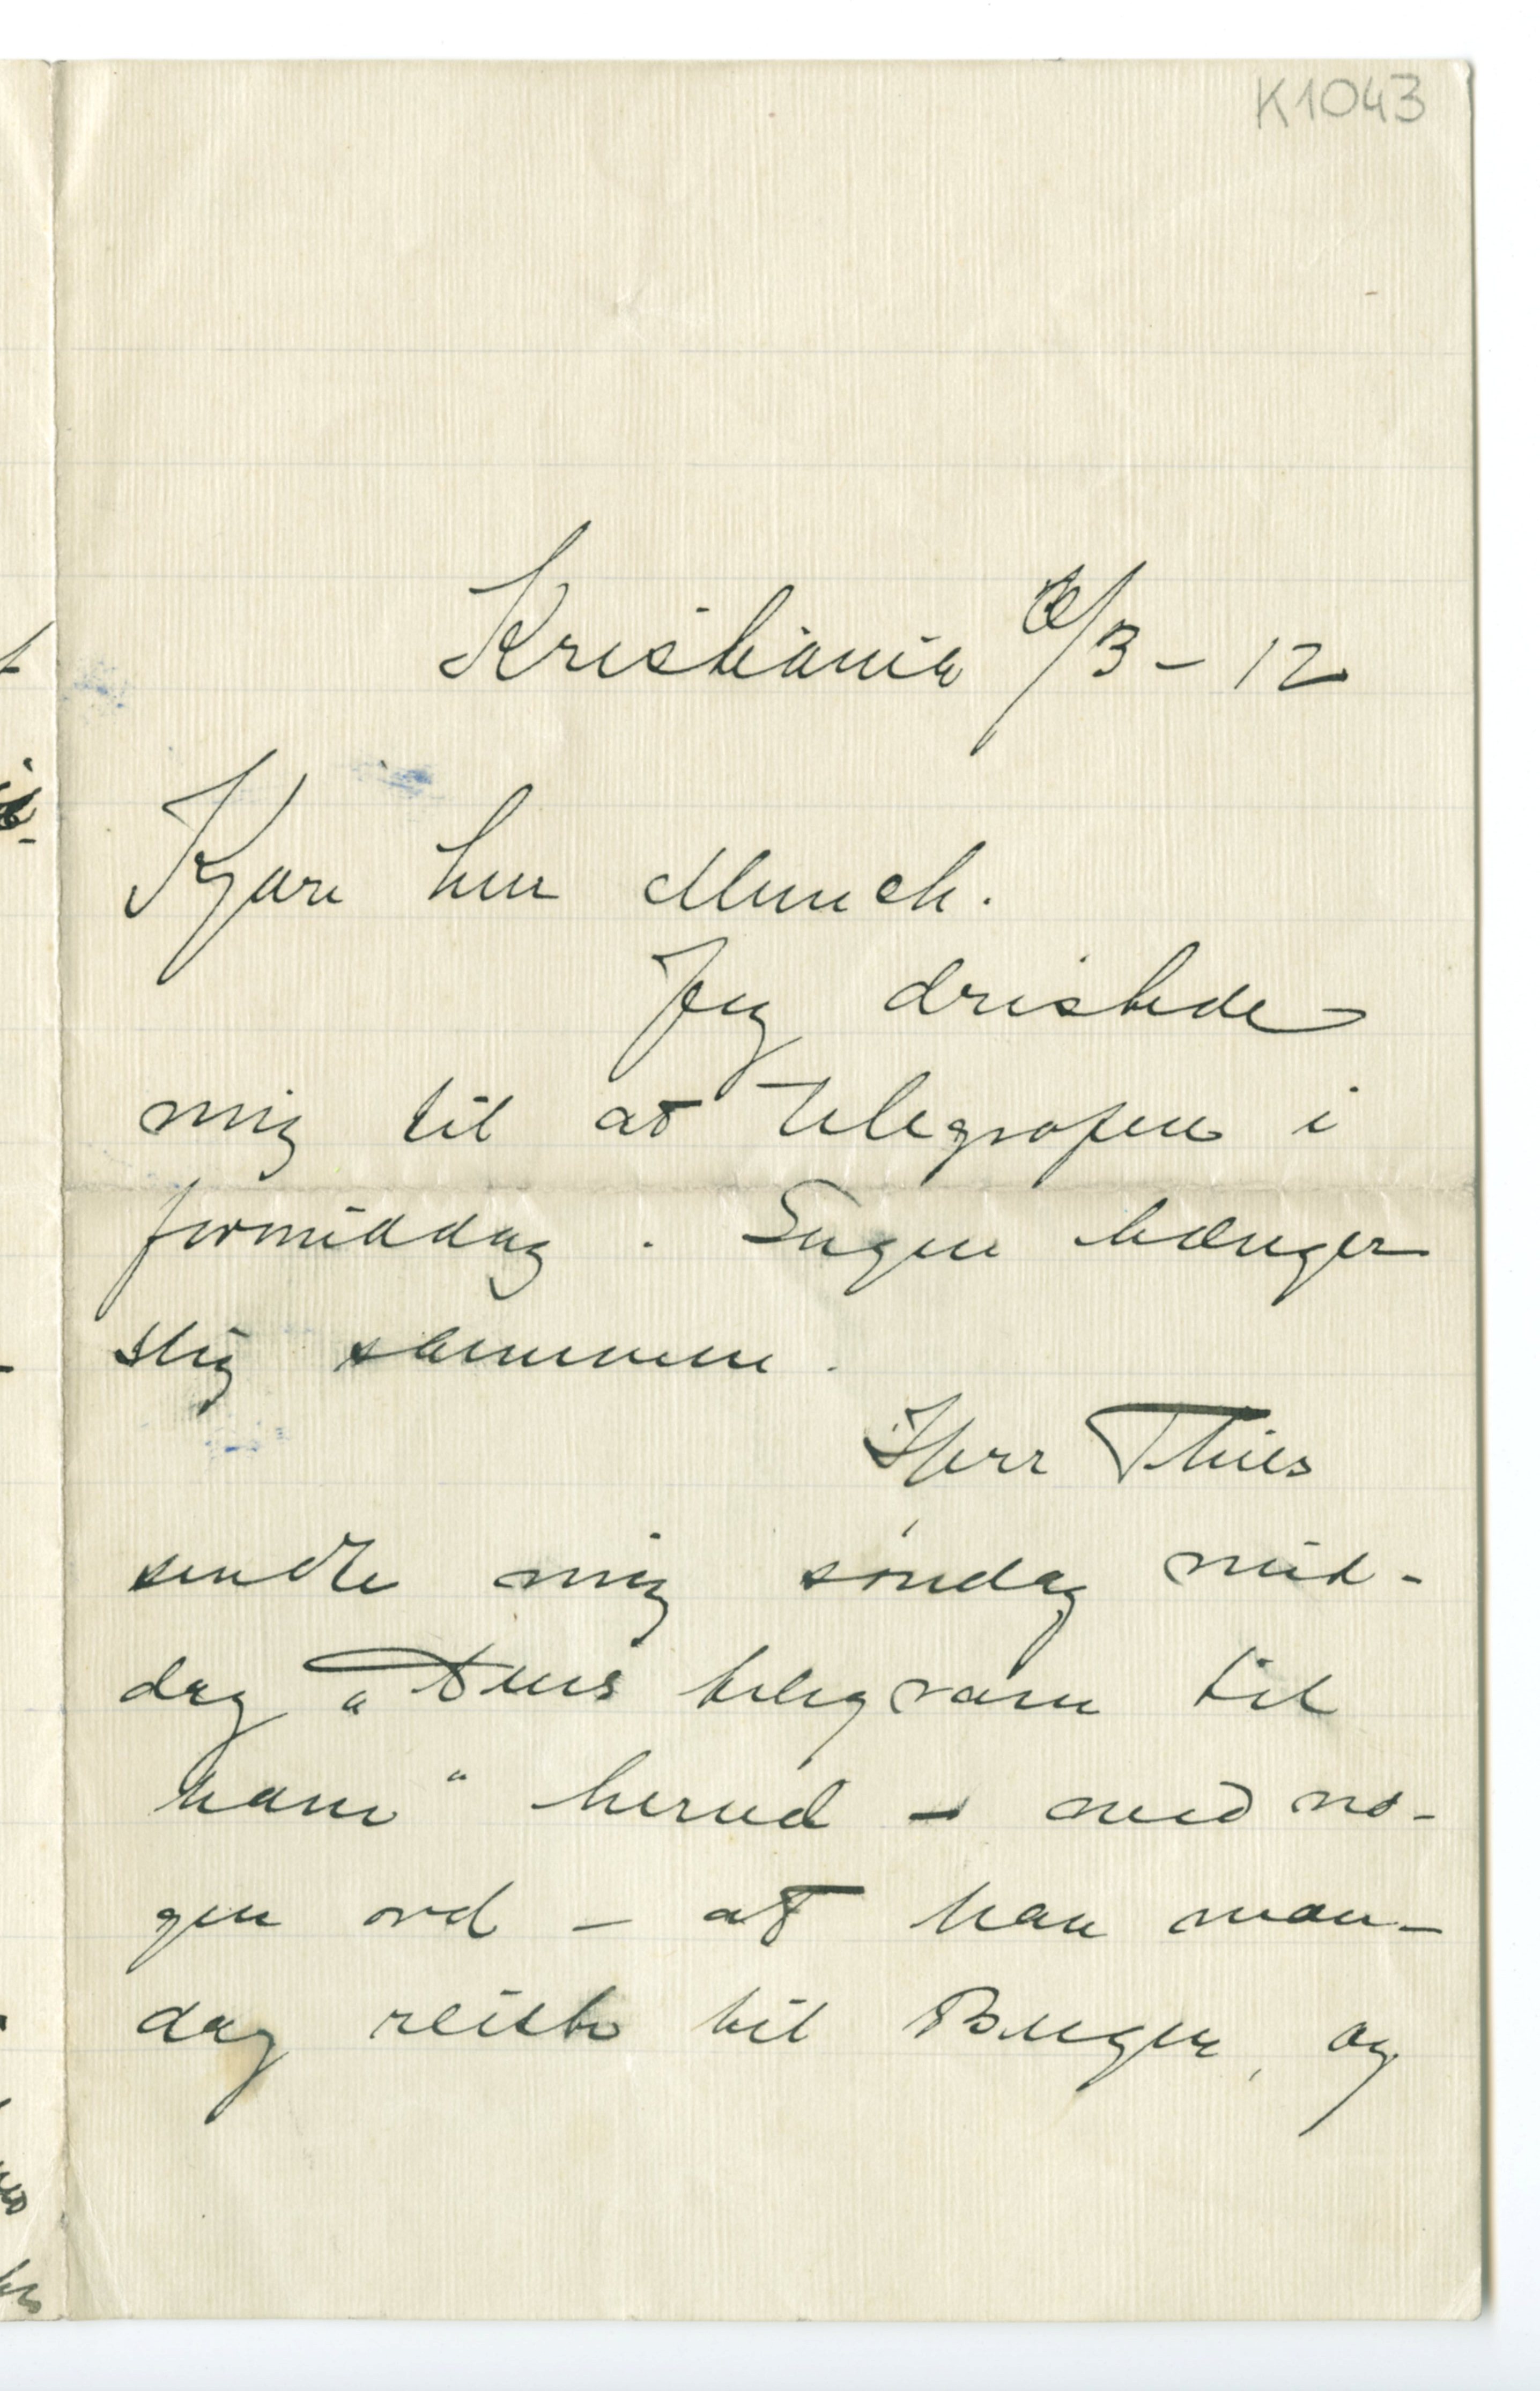 K1043
Kristiania /3 – 12
Kjære herr Munch.
Jeg dristede
mig til at telegrafere i
formiddag. Sagen hænger
slig sammen.
Herr Thiis
sendte mig søndag mid-
dag „Deres telegram til
ham“ herned – med no-
gen ord – at han man-
dag reiste til Bergen, og